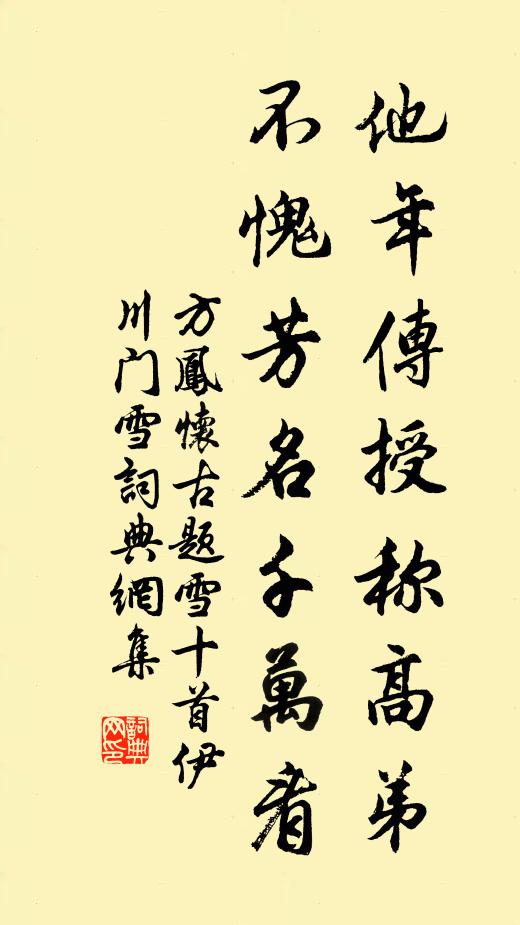 他年傳授称高弟
不愧芳名千萬看
方鳳懷古題雪十首伊
川门雪詞典網集
詞典網印